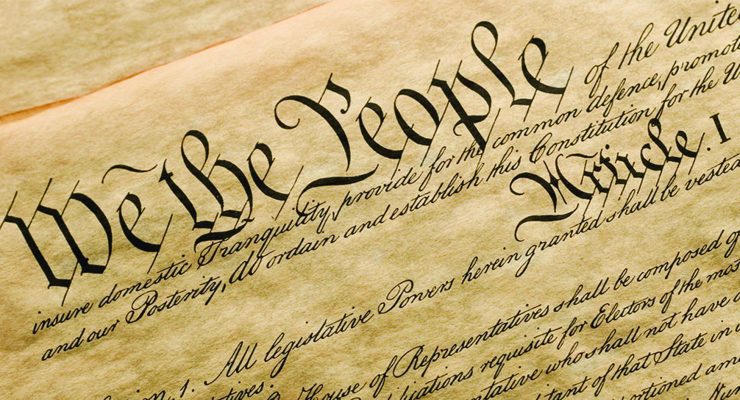 We the People of the United
insure domestic Tranquility, provide for the common defence, promote
and our Posterity, do ordain and establish this Constitution for the U
Article. I
1. All legislative Powers herein granted shall be vested
House of Representatives shall be composed of
requisite for Electors of the most
who shall not have a
of that State in